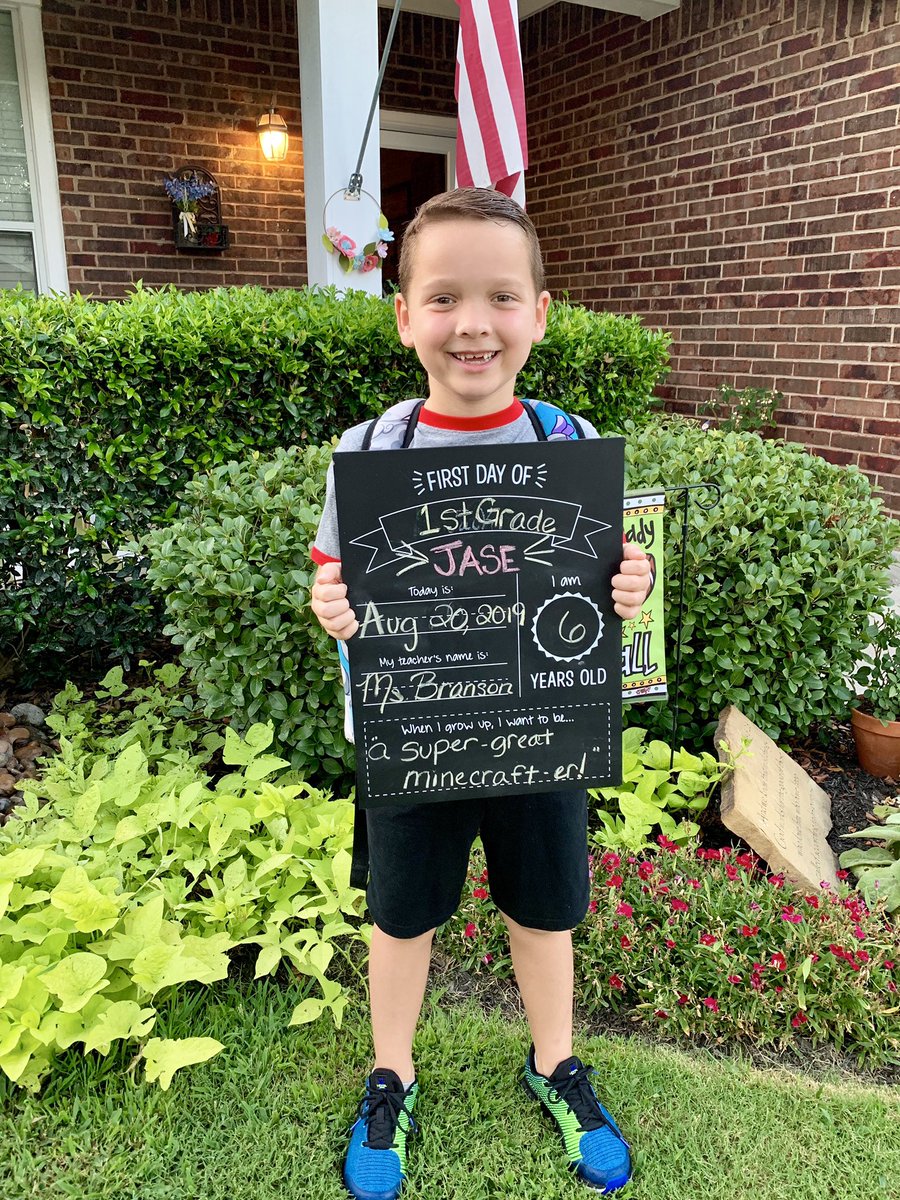 FIRST DAY OF
1st Grade
JASE
Today is:
Aug 20, 2019
My teacher's name is:
Ms. Branson
I am
6
YEARS OLD
When I grow up, I want to be...
"a super-great
minecraft-er!"